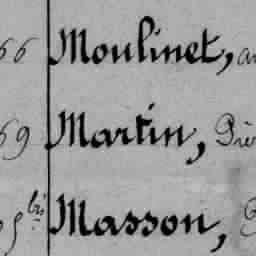 66 Moulinet,
69 Martin,
5 bis Masson,